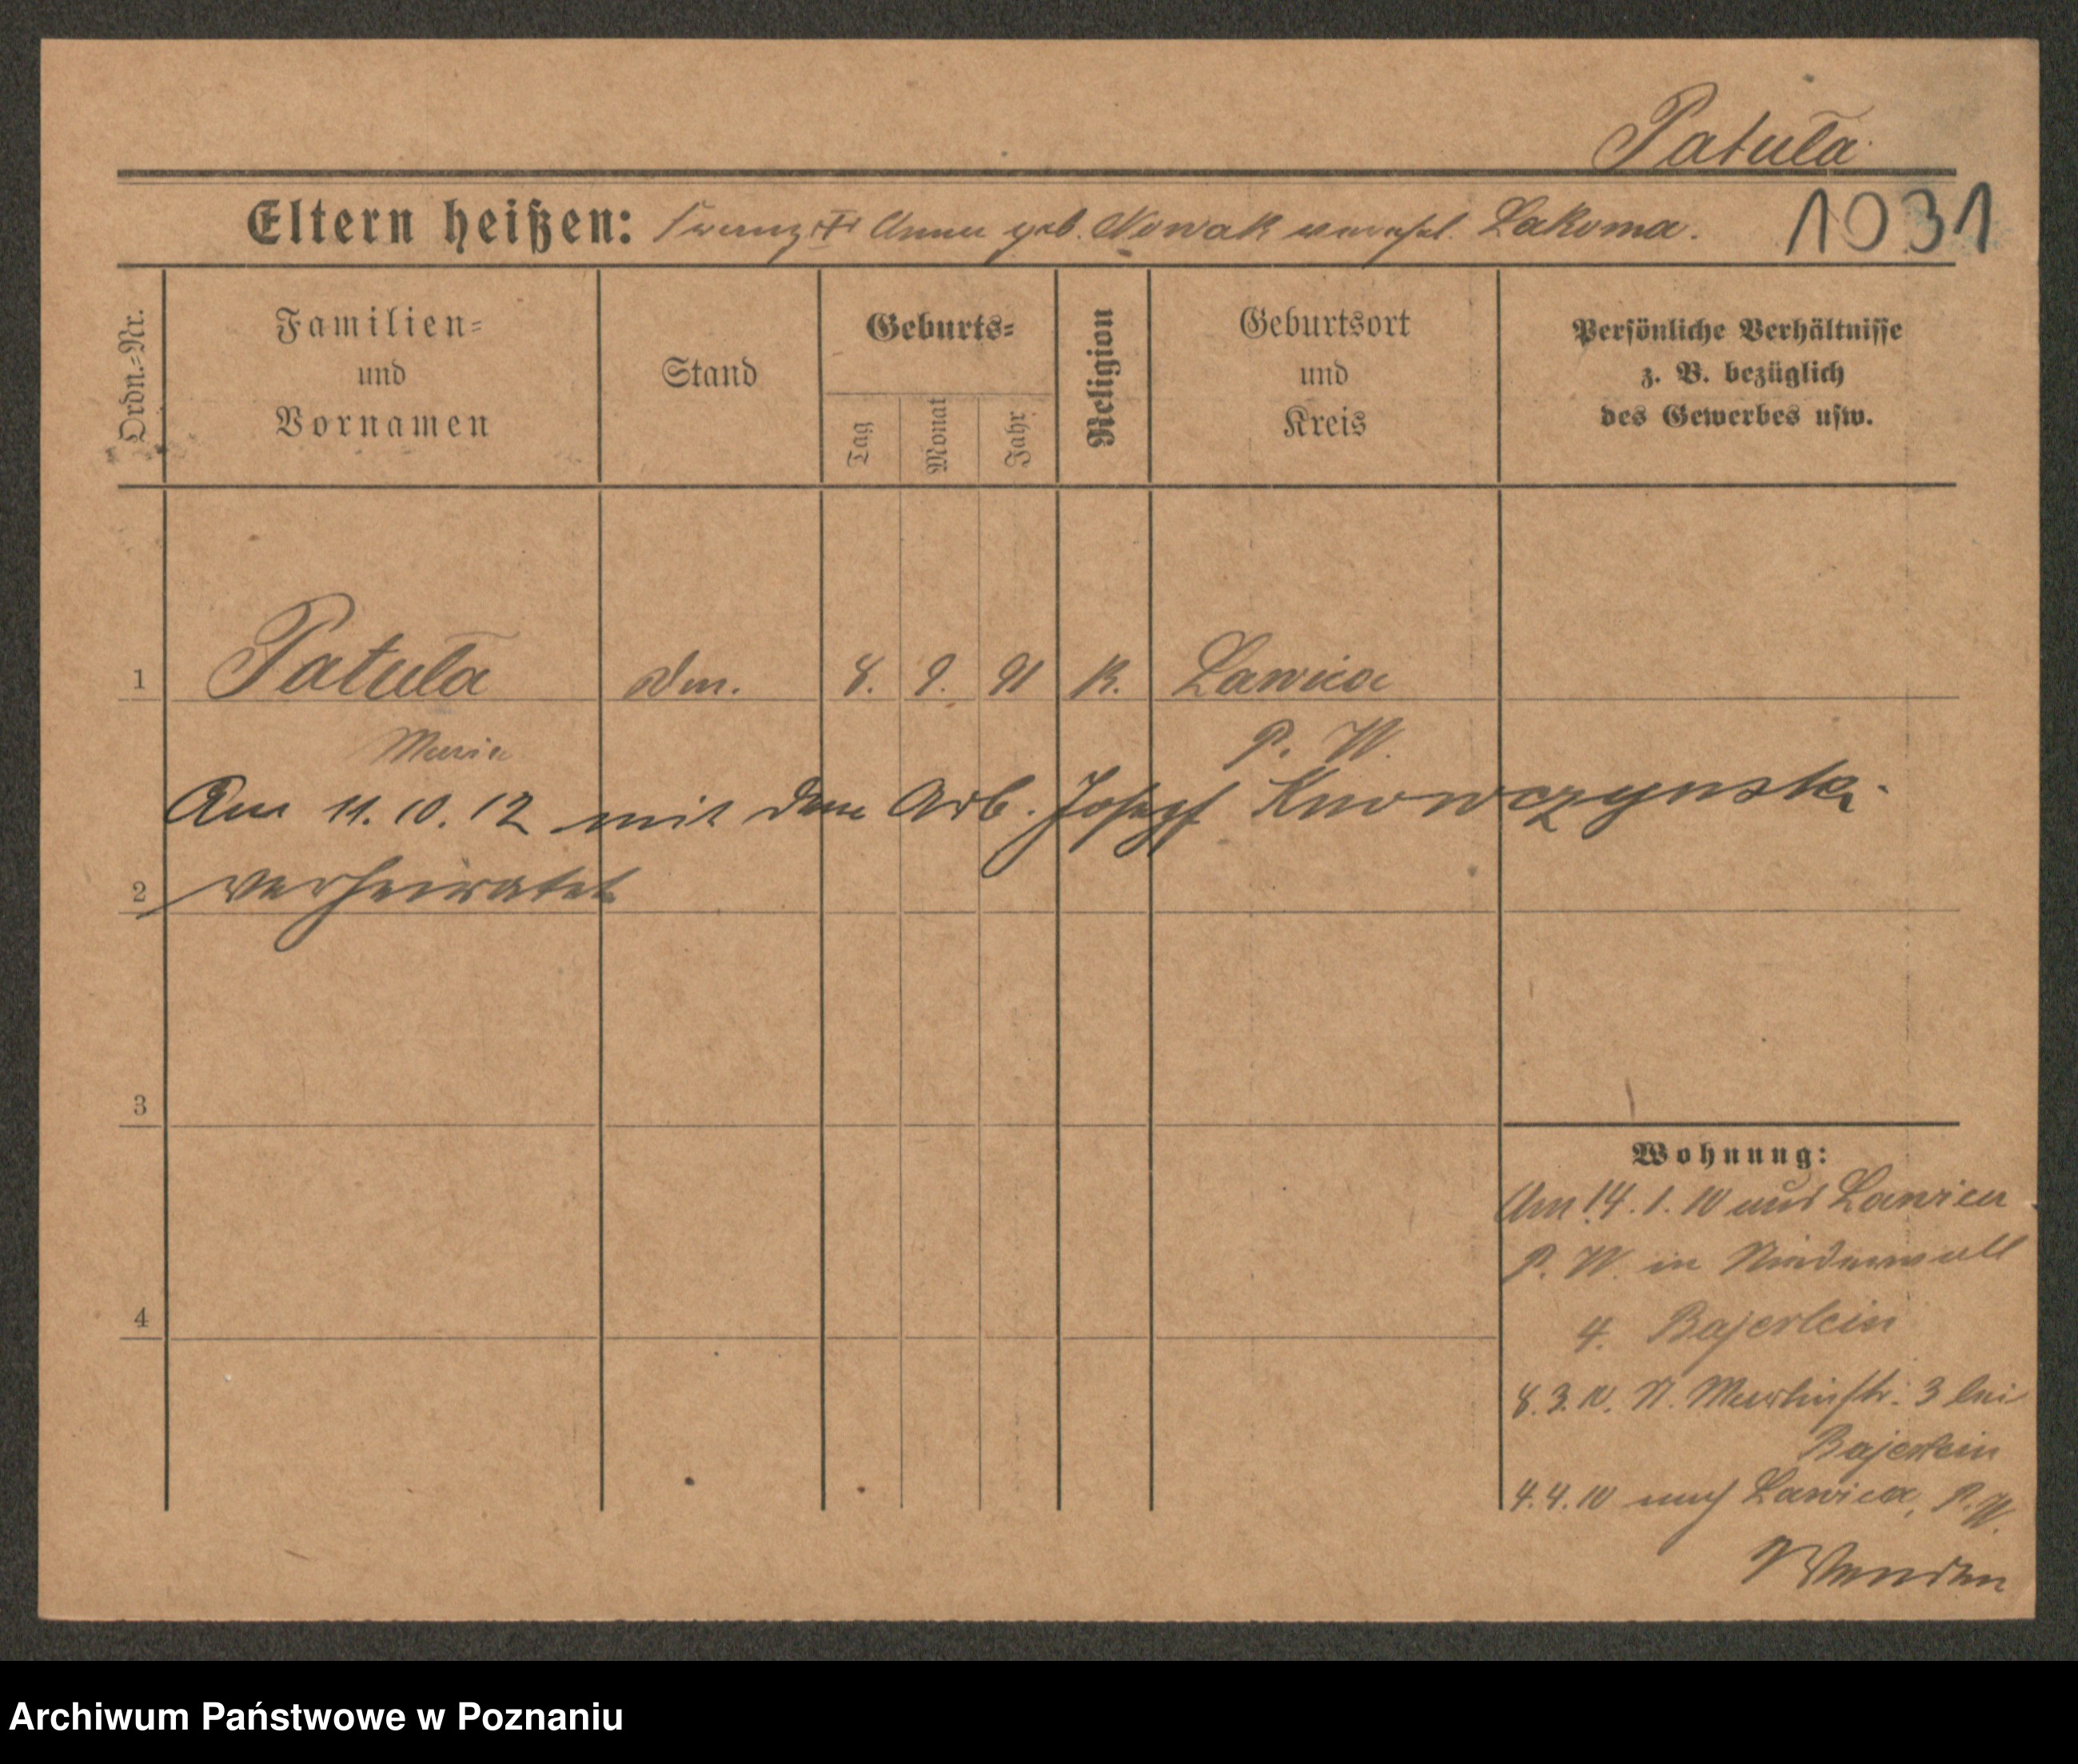 Patuła
Eltern heißen: Franz † Anna geb. Nowak verehel. Lakoma. 1031
Ordn.-Nr.
Familien-
und
Vornamen
Stand
Geburts-
Tag
Monat
Jahr
Religion
Geburtsort
und
Kreis
Persönliche Verhältnisse
z. B. bezüglich
des Gewerbes usw.
1 Patuła 8. 9. 91 K. Lawica
Maria P. W.
Am 11. 10. 12 mit dem Arb. Josef
2 verheiratet
3
Wohnung:
Am 14. 1. 10 aus Lawica
P. W. in Niederwall
4
4. Bajerlein
8. 3. 10. St. Martinstr. 3 bei
Bajerlein
4. 4. 10 nach Lawica, P. W.
Wenden
Archiwum Państwowe w Poznaniu